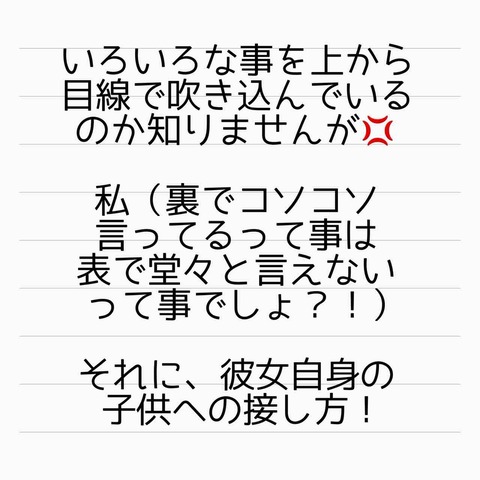 いろいろな事を上から
目線で吹き込んでいる
のか知りませんが💢
私（裏でコソコソ
言ってるって事は
表で堂々と言えない
って事でしょ？！）
それに、彼女自身の
子供への接し方！